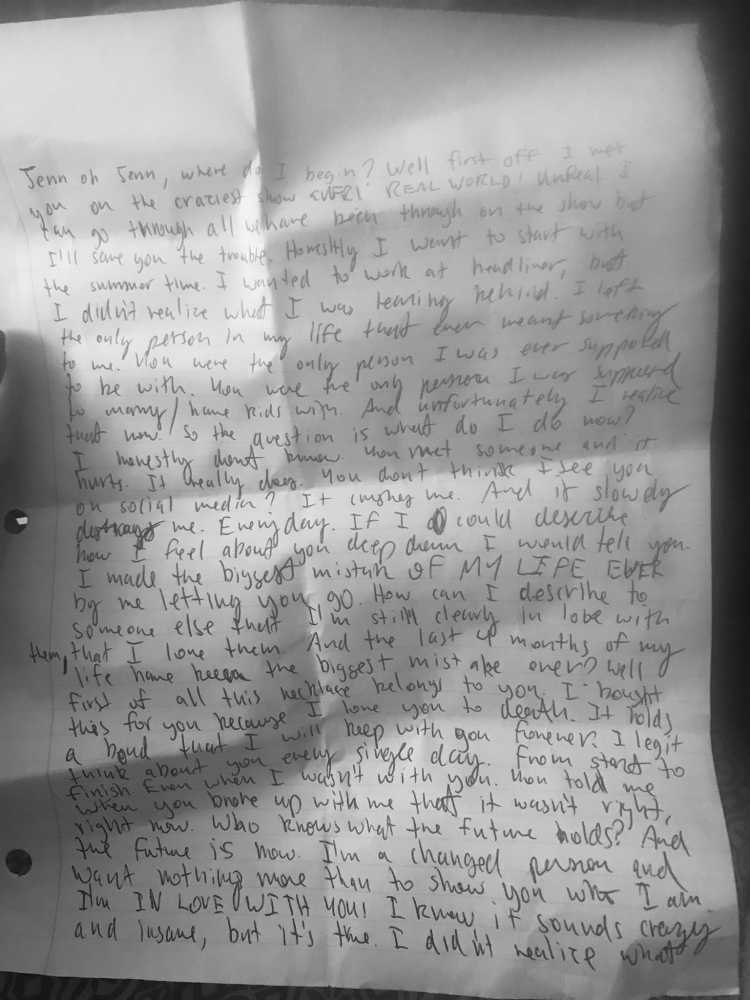 Jenn oh Jenn, where do I begin? Well first off I met
you on the craziest show EVER! REAL WORLD! Unreal I
can go through all we have been through on the show but
I'll save you the trouble. Honestly I want to start with
the summer time. I wanted to work at headliner, but
I didn't realize what I was leaving behind. I left
the only person in my life that ever meant something
to me. You were the only person I was ever supposed
to be with. You were the only person I was supposed
to marry/have kids with. And unfortunately I realize
that now. So the question is what do I do now?
I honestly don't know. You met someone and it
hurts. It really does. You don't think I see you
on social media? It crushes me. And it slowly
destroys me. Everyday. If I could describe
how I feel about you deep down I would tell you.
I made the biggest mistak OF MY LIFE EVER
by me letting you go. How can I describe to
someone else that I'm still clearly in lobe with
them, that I love them. And the last 4 months of my
life have been the biggest mistake ever? Well
first of all this necklace belongs to you. I bought
this for you because I love you to death. It holds
a bond that I will keep with you forever. I legit
think about you every single day. From start to
finish. Even when I wasn't with you. You told me
when you broke up with me that it wasn't right,
right now. Who knows what the future holds? And
the future is now. I'm a changed person and
want nothing more than to show you who I am.
I'm IN LOVE WITH YOU! I know it sounds crazy
and insane, but it's true. I didn't realize what